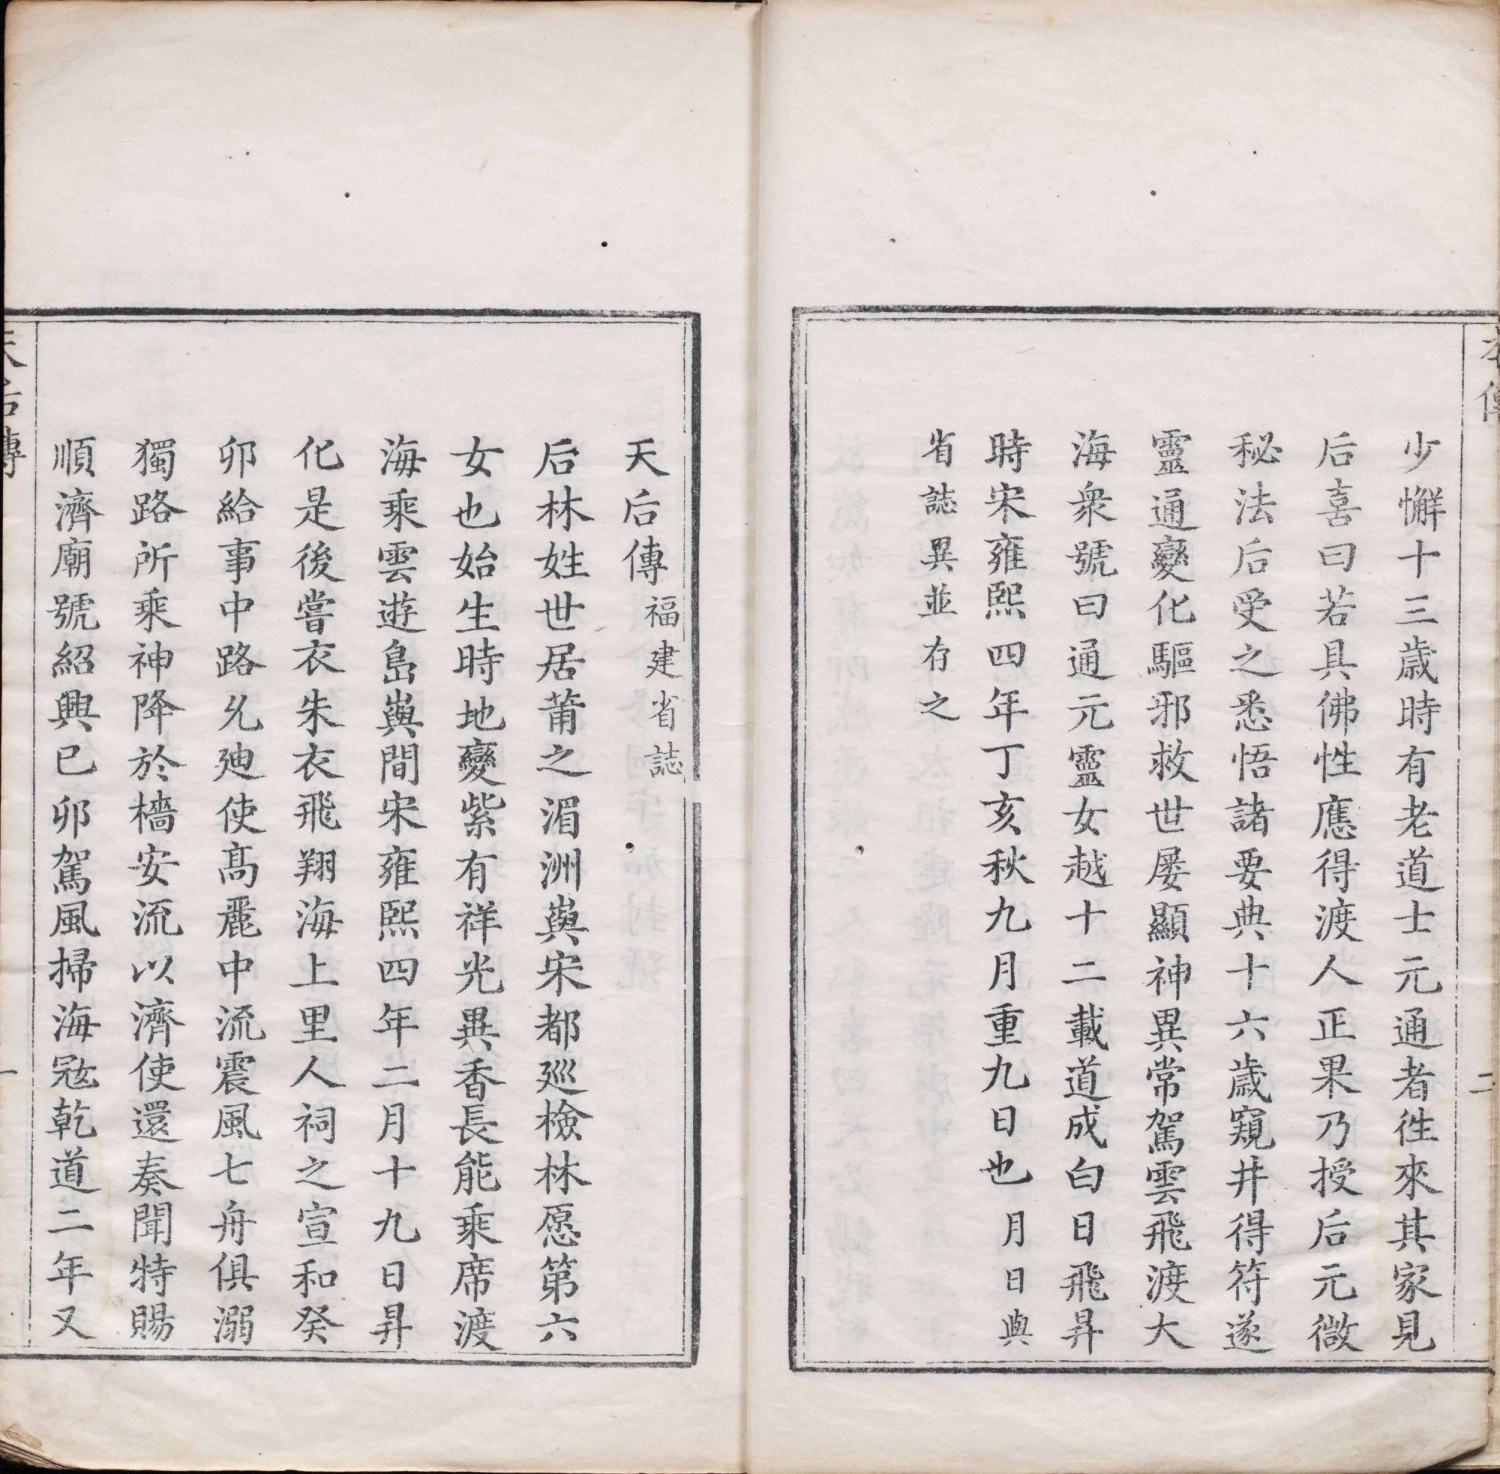 本傳
二
少懈十三歲時有老道士元通者徃來其家見
后喜曰若具佛性應得渡人正果乃授后元微
秘法后受之悉悟諸要典十六歲窺井得符遂
靈通變化驅邪救世屡顯神異常駕雲飛渡大
海衆號曰通元靈女越十二載道成白日飛昇
時宋雍熙四年丁亥秋九月重九日也月日與
省誌異並存之
天后傳福建省誌
后林姓世居莆之湄洲㠘宋都廵檢林愿第六
女也始生時地變紫有祥光異香長能乘席渡
海乘雲遊島㠘間宋雍熙四年二月十九日昇
化是後嘗衣朱衣飛翔海上里人祠之宣和癸
卯給事中路允廸使髙麗中流震風七舟俱溺
獨路所乘神降於檣安流以濟使還奏聞特賜
順濟廟號紹興已卯駕風掃海寇乾道二年又
天后傳
一